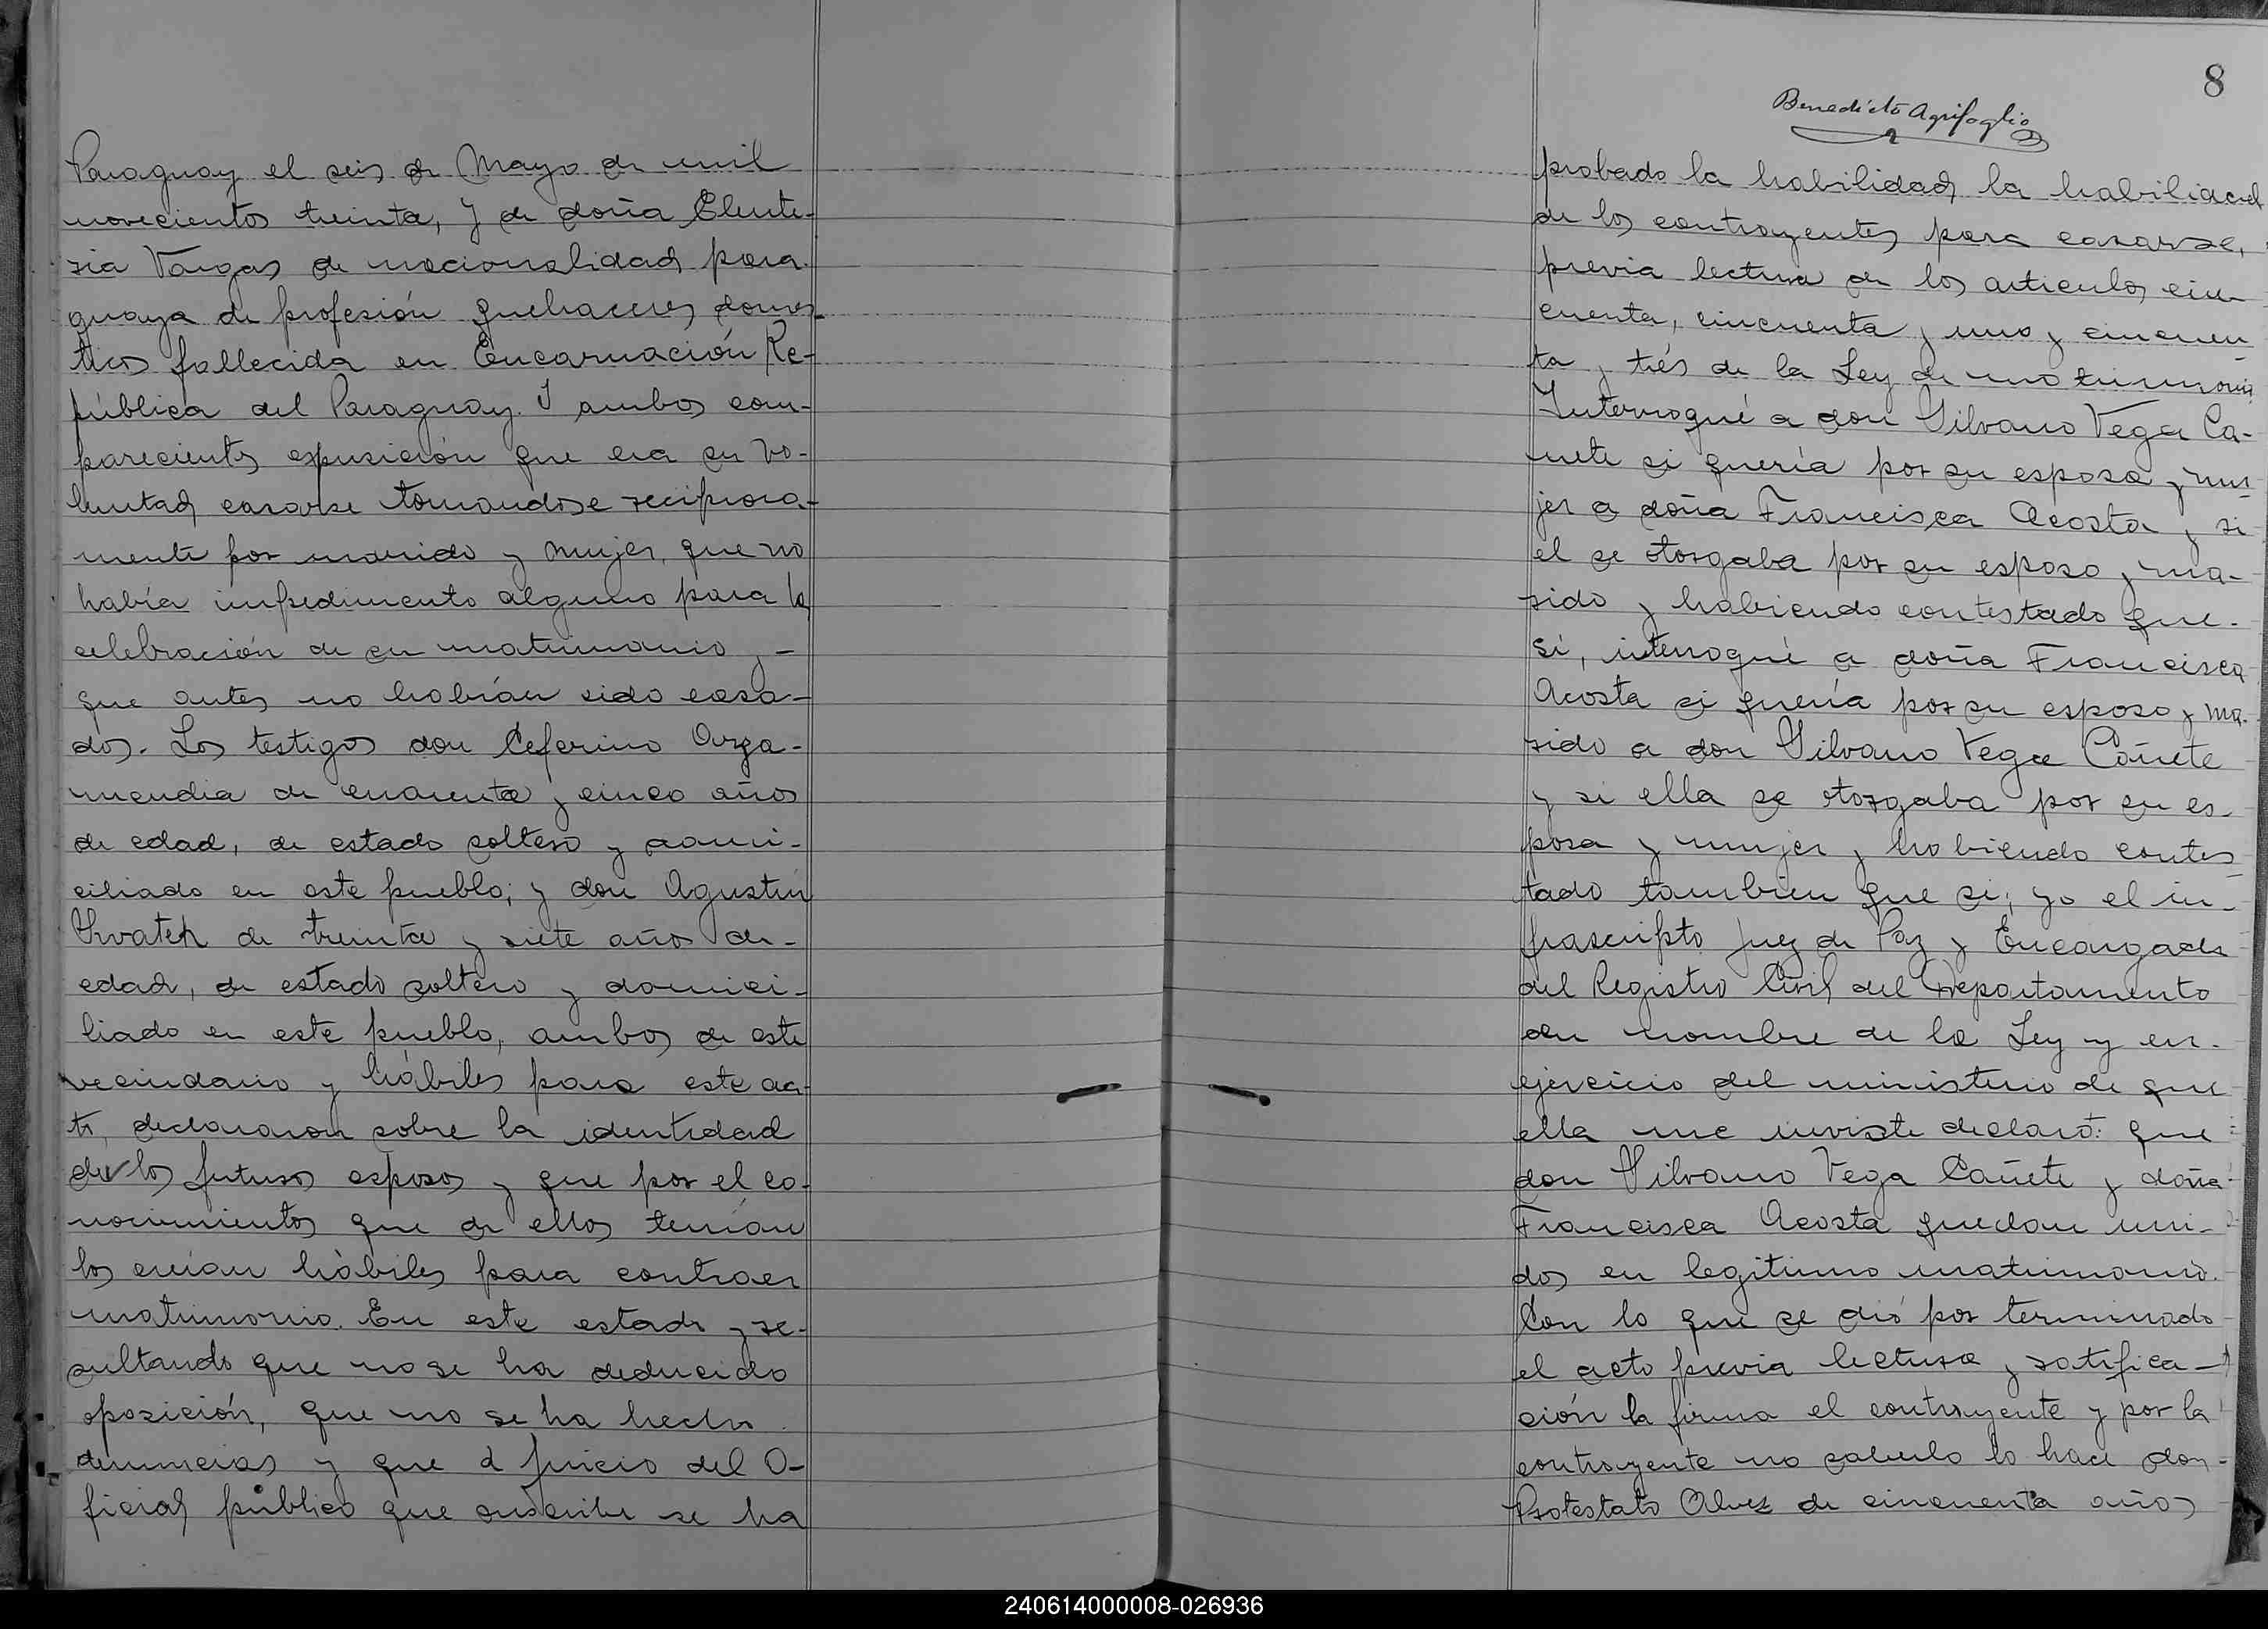 Paraguay el seis de Mayo de mil
novecientos treinta, y de doña Eleute-
ria Vargas de nacionalidad para-
guaya de profesión quehaceres domes-
ticos fallecida en Encarnación Re-
pública del Paraguay. I ambos com-
parecientes expusieron que era su vo-
luntad casarse tomandose reciproca-
mente por marido y mujer, que no
había impedimento alguno para la
celebración de su matrimonio y -
que antes no habían sido casa-
dos. Los testigos don Ceferino Arza-
mendia de cuarenta y cinco años
de edad, de estado soltero y domi-
ciliado en este pueblo; y don Agustín
de treinta y siete años de-
edad, de estado soltero y domici-
liado en este pueblo, ambos de este
vecindario y hábiles para este ac-
to, declararon sobre la identidad
de los futuros esposos y que por el co-
nocimientos que de ellos tenían
los creían hábiles para contraer
matrimonio. En este estado y re-
sultando que no se ha deducido
oposición, que no se ha hecho
denuncias y que a juicio del O-
ficial público que suscribe se ha
8
Benedicto Agrifoglio
probado la habilidad la habilidad
de los contrayentes para casarse,
previa lectura de los articulos cin-
cuenta, cincuenta y uno y cincuen-
ta y trés de la Ley de matrimonio
Interrogué a don Silvano Vega Ca-
ñete si quería por su esposa y mu-
jer a doña Francisca Acosta y si
el se otorgaba por su esposo y ma-
rido y habiendo contestado que-
si, interrogué a doña Francisca
Acosta si quería por su esposo y ma-
rido a don Silvano Vega Cañete
y si ella se otorgaba por su es-
posa y mujer y habiendo contes-
tado tambien que si; yo el in-
frascripto Juez de Paz y Encargado
del Registro Civil del Departamento
en nombre de la Ley y en-
ejercicio del ministerio de que
ella me inviste declaró: que
don Silvano Vega Cañete y doña
Francisca Acosta quedan uni-
dos en legitimo matrimonio.
Con lo que se dió por terminado
el acto previa lectura y ratifica-
ción la firma el contrayente y por la
contrayente no saberlo lo hace don-
Protestato Alvez de cincuenta años
240614000008-026936